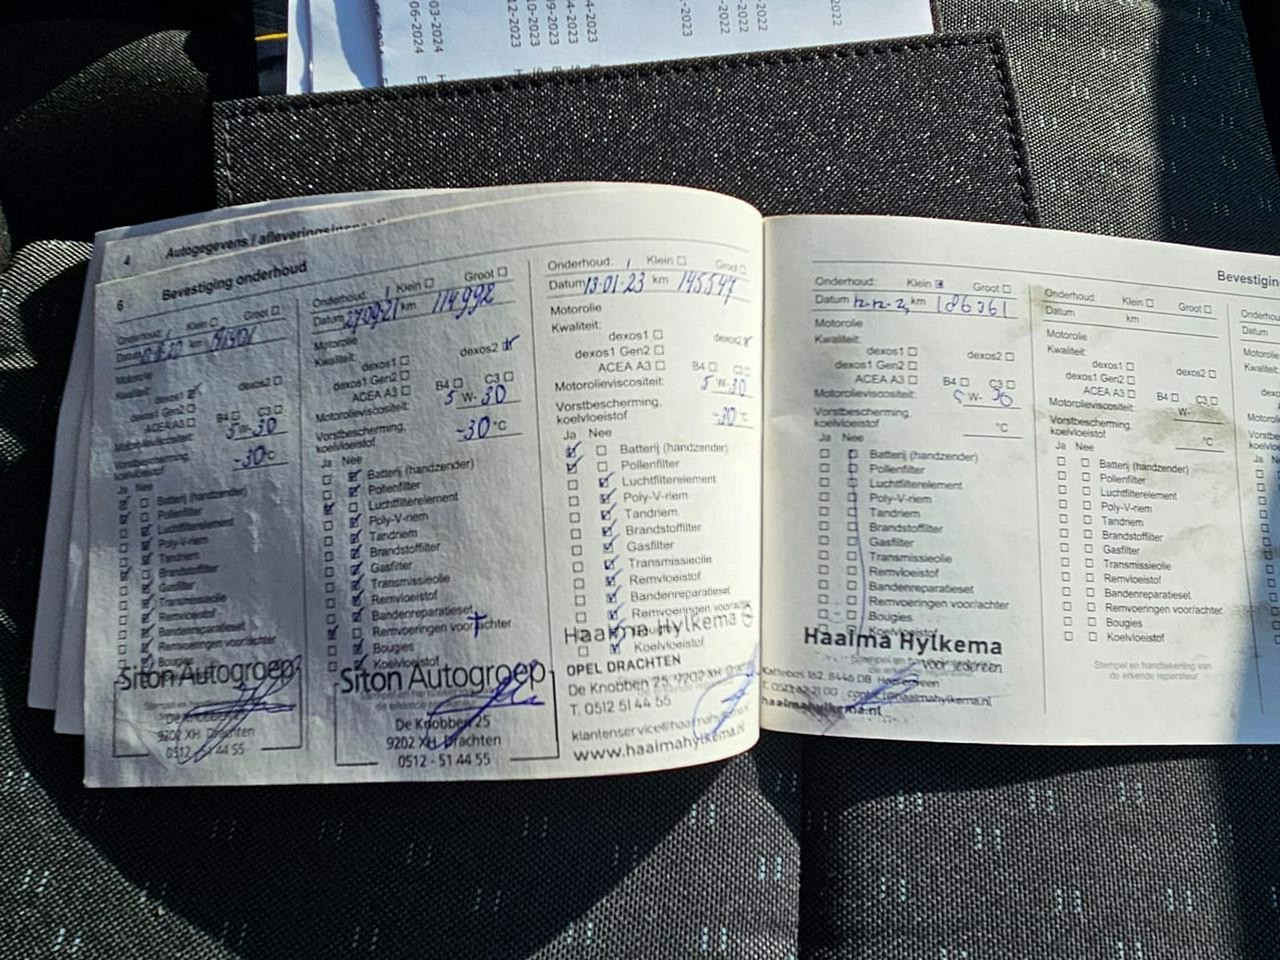 03-2024
06-2024
12-2023
10-2023
09-2023
04-2023
4-2023
-2023
-2022
-2022
-2022
2022
4 Autogegevens / afleveringsinspe
6 Bevestiging onderhoud
Onderhoud: Klein Groot
Datum km
Motorolie
Kwaliteit:
dexos1 dexos2
dexos1 Gen2
ACEA A3 B4 C3
Motorolieviscositeit: 5 W-30
Vorstbescherming,
koelvloeistof -30°C
Ja Nee
Batterij (handzender)
Pollenfilter
Luchtfilterelement
Poly-V-riem
Tandriem
Brandstoffilter
Gasfilter
Transmissieolie
Remvloeistof
Bandenreparatieset
Remvoeringen voor/achter
Bougies
Siton Autogroep
De Knobben 25
9202 XH Drachten
0512 - 51 44 55
Onderhoud: Klein Groot
Datum 27-09-21 km 114.992
Motorolie
Kwaliteit:
dexos1 dexos2
dexos1 Gen2
ACEA A3 B4 C3
Motorolieviscositeit: 5 W-30
Vorstbescherming,
koelvloeistof -30°C
Ja Nee
Batterij (handzender)
Pollenfilter
Luchtfilterelement
Poly-V-riem
Tandriem
Brandstoffilter
Gasfilter
Transmissieolie
Remvloeistof
Bandenreparatieset
Remvoeringen voor/achter
Bougies
Koelvloeistof
Siton Autogroep
De Knobben 25
9202 XH Drachten
0512 - 51 44 55
Onderhoud: Klein Groot
Datum 13-01-23 km 145547
Motorolie
Kwaliteit:
dexos1 dexos2
dexos1 Gen2
ACEA A3 B4 C3
Motorolieviscositeit: 5 W-30
Vorstbescherming,
koelvloeistof -30°C
Ja Nee
Batterij (handzender)
Pollenfilter
Luchtfilterelement
Poly-V-riem
Tandriem
Brandstoffilter
Gasfilter
Transmissieolie
Remvloeistof
Bandenreparatieset
Remvoeringen voor/achter
Bougies
Koelvloeistof
Haaima Hylkema
OPEL DRACHTEN
De Knobben 25, 9202 XH
T. 0512 51 44 55
klantenservice@haaimahylkema
www.haaimahylkema.nl
Bevestigin
Onderhoud: Klein Groot
Datum km 186361
Motorolie
Kwaliteit:
dexos1 dexos2
dexos1 Gen2
ACEA A3 B4 C3
Motorolieviscositeit: 5 W-30
Vorstbescherming,
koelvloeistof °C
Ja Nee
Batterij (handzender)
Pollenfilter
Luchtfilterelement
Poly-V-riem
Tandriem
Brandstoffilter
Gasfilter
Transmissieolie
Remvloeistof
Bandenreparatieset
Remvoeringen voor/achter
Bougies
Koelvloeistof
Haaima Hylkema
voor iedereen
Kattebos 162, 8446 DB Heerenveen
haaimahylkema.nl
Onderhoud: Klein Groot
Datum km
Motorolie
Kwaliteit:
dexos1 dexos2
dexos1 Gen2
ACEA A3 B4 C3
Motorolieviscositeit: W-
Vorstbescherming,
koelvloeistof °C
Ja Nee
Batterij (handzender)
Pollenfilter
Luchtfilterelement
Poly-V-riem
Tandriem
Brandstoffilter
Gasfilter
Transmissieolie
Remvloeistof
Bandenreparatieset
Remvoeringen voor/achter
Bougies
Koelvloeistof
Stempel en handtekening van
de erkende reparateur
Onderhou
Datum
Motorolie
Kwaliteit: